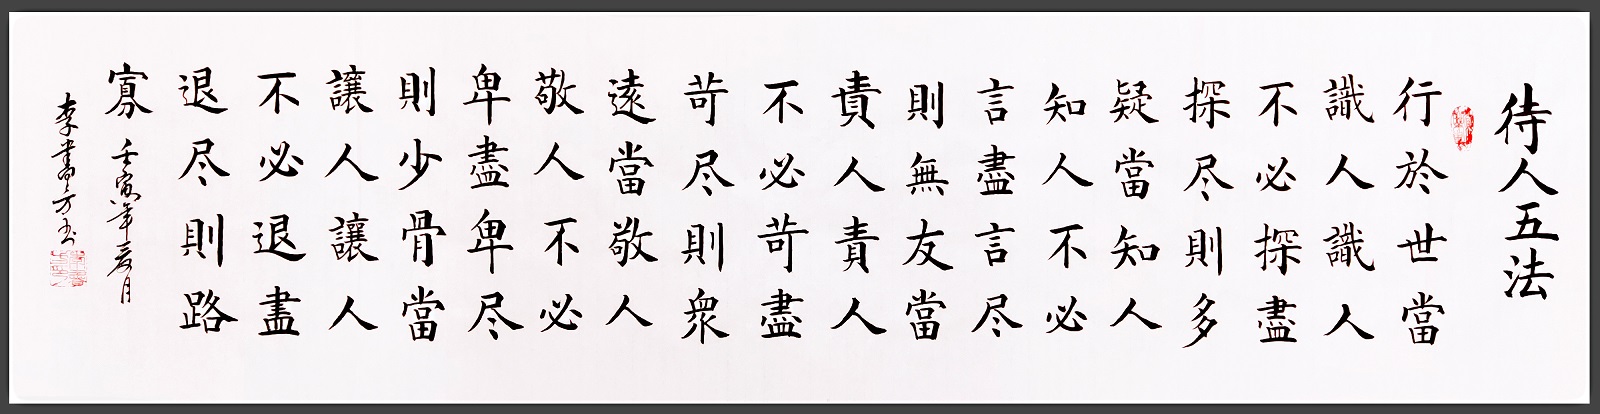 待人五法
行於世當
識人識人
不必探盡
探尽則多
疑當知人
知人不必
言盡言尽
則無友當
責人責人
不必苛盡
苛尽則衆
遠當敬人
敬人不必
卑盡卑尽
則少骨當
讓人讓人
不必退盡
退尽則路
寡 壬寅年夏月
李書方书